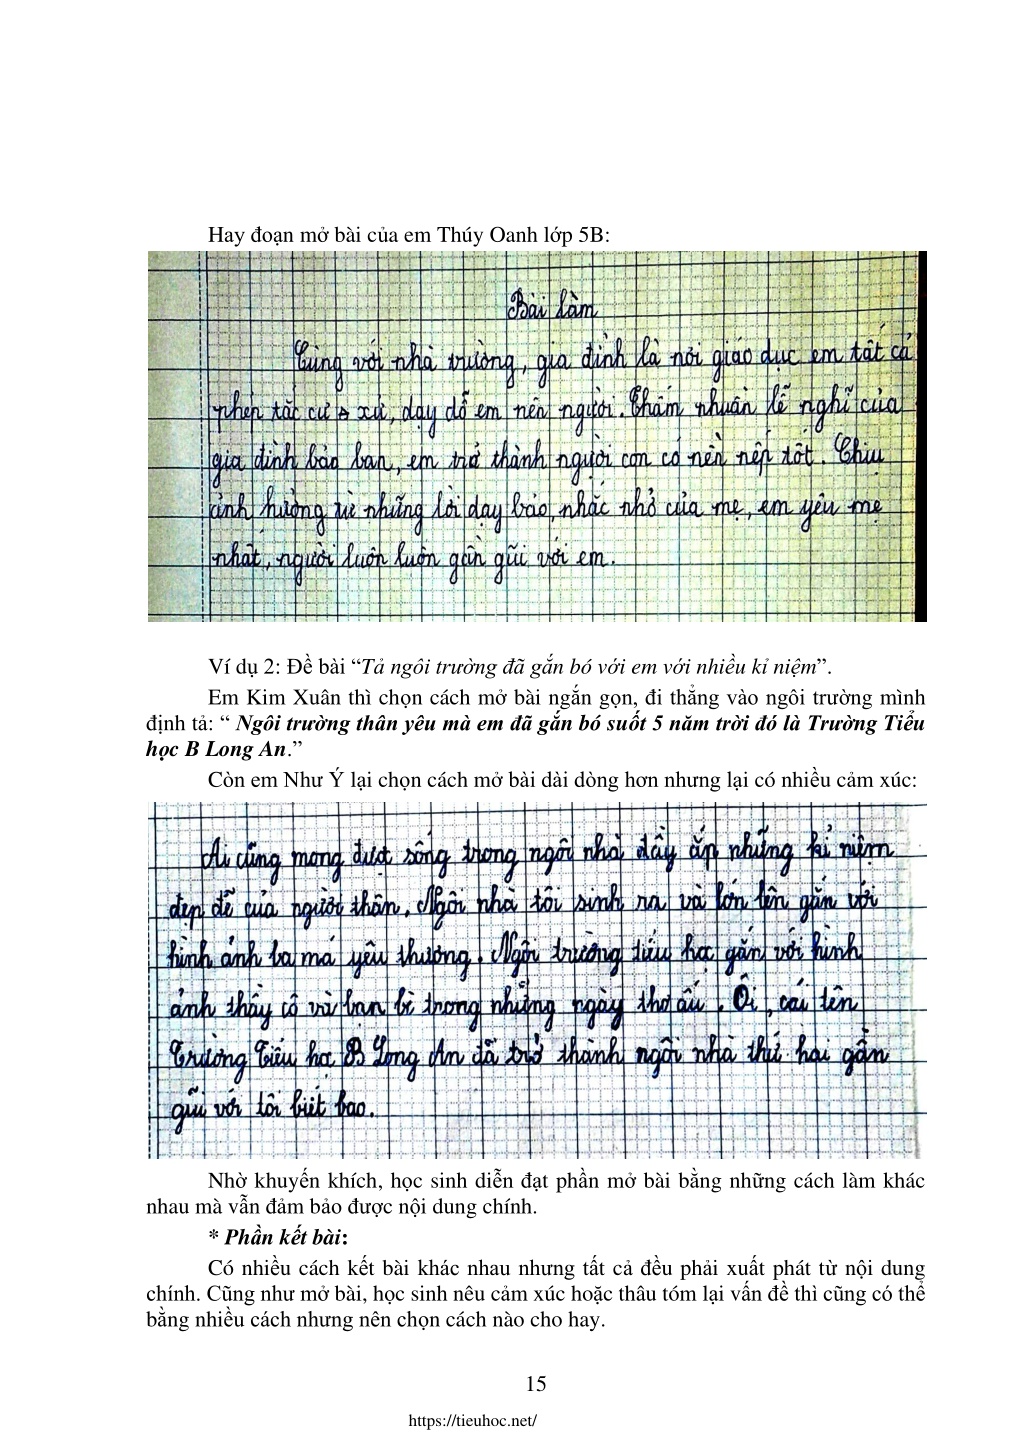 Hay đoạn mở bài của em Thúy Oanh lớp 5B:
Bài làm
Cùng với nhà trường, gia đình là nơi giáo dục em tất cả
phép tắc cư xử, dạy dỗ em nên người. Thấm nhuần lễ nghĩ của
gia đình bảo ban, em trở thành người con có nền nếp tốt. Chịu
ảnh hưởng từ những lời dạy bảo, nhắc nhở của mẹ, em yêu mẹ
nhất, người luôn luôn gần gũi với em.
Ví dụ 2: Đề bài “Tả ngôi trường đã gắn bó với em với nhiều kỉ niệm”.
Em Kim Xuân thì chọn cách mở bài ngắn gọn, đi thẳng vào ngôi trường mình
định tả: “ Ngôi trường thân yêu mà em đã gắn bó suốt 5 năm trời đó là Trường Tiểu
học B Long An.”
Còn em Như Ý lại chọn cách mở bài dài dòng hơn nhưng lại có nhiều cảm xúc:
Ai cũng mong được sống trong ngôi nhà đầy ắp những kỉ niệm
đẹp đẽ của người thân. Ngôi nhà tôi sinh ra và lớn lên gắn với
hình ảnh ba má yêu thương. Ngôi trường tiểu học gắn với hình
ảnh thầy cô và bạn bè trong những ngày thơ ấu. Ôi, cái tên
Trường Tiểu học B Long An đã trở thành ngôi nhà thứ hai gần
gũi với tôi biết bao.
Nhờ khuyến khích, học sinh diễn đạt phần mở bài bằng những cách làm khác
nhau mà vẫn đảm bảo được nội dung chính.
* Phần kết bài:
Có nhiều cách kết bài khác nhau nhưng tất cả đều phải xuất phát từ nội dung
chính. Cũng như mở bài, học sinh nêu cảm xúc hoặc thâu tóm lại vấn đề thì cũng có thể
bằng nhiều cách nhưng nên chọn cách nào cho hay.
15
https://tieuhoc.net/